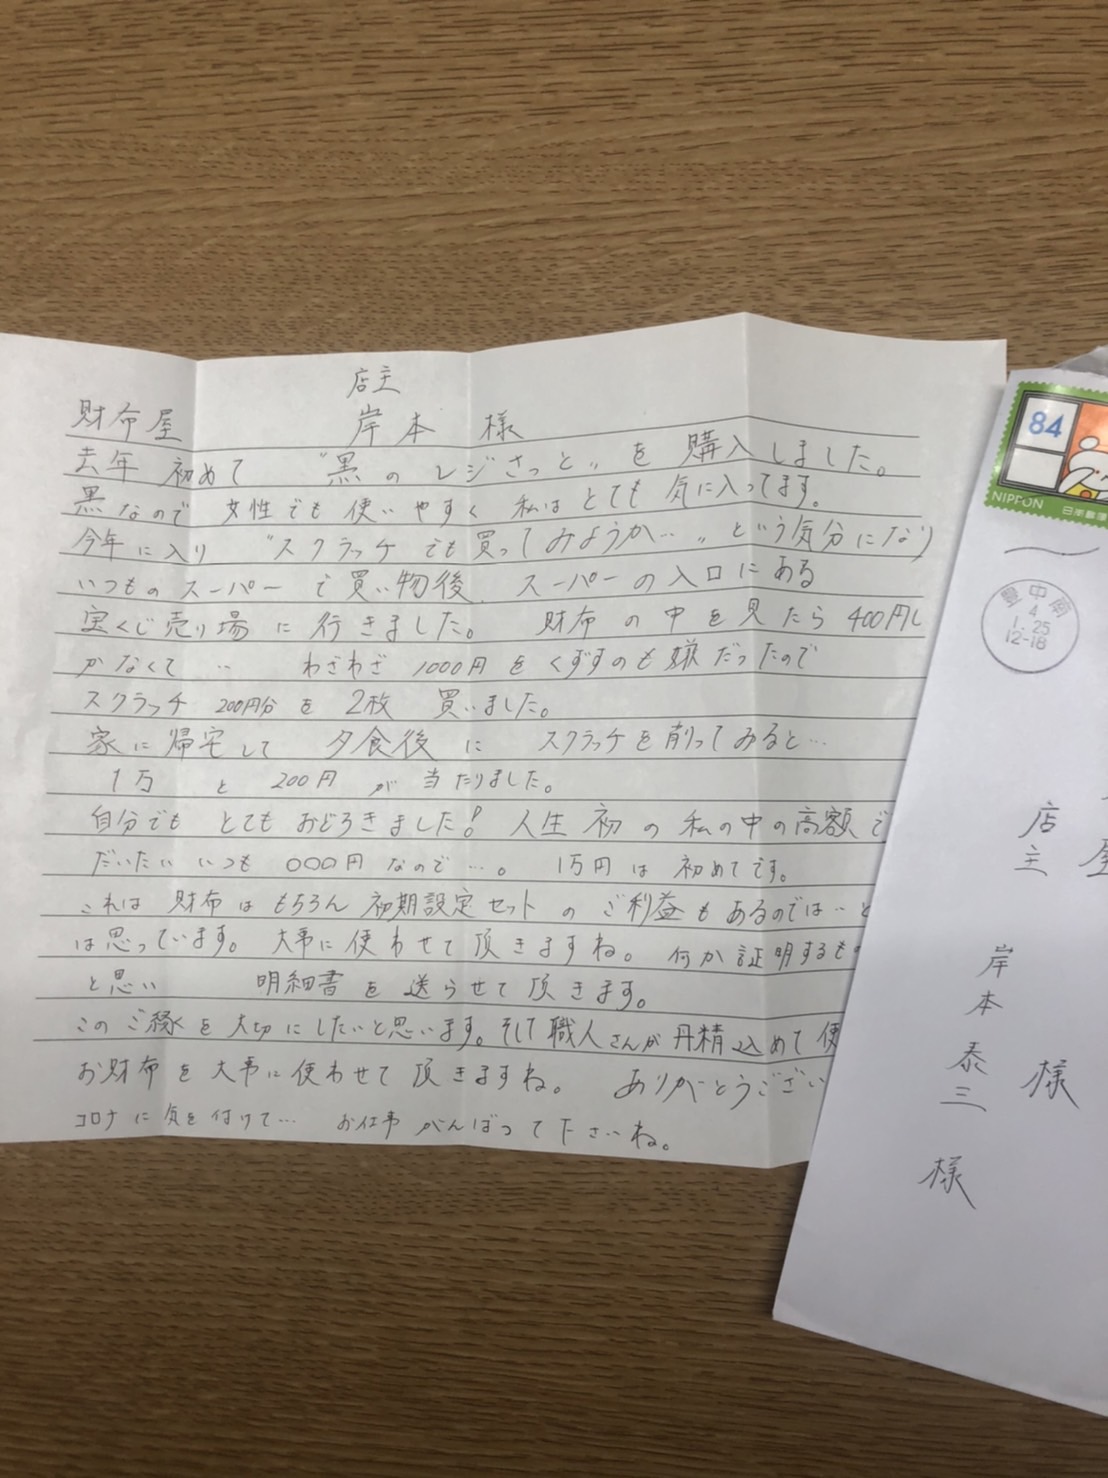 店主
財布屋 岸本 様
去年 初めて "黒のレジさっと" を 購入しました。
黒なので 女性でも使いやすく 私はとても 気に入ってます。
今年に入り "スクラッチでも買ってみようか…" という気分になり
いつものスーパーで買い物後、スーパーの入口にある
宝くじ売り場に行きました。 財布の中を見たら 400円し
かなくて … わざわざ 1000円をくずすのも嫌だったので
スクラッチ 200円分を 2枚 買いました。
家に帰宅して 夕食後に スクラッチを削ってみると…
1万 と 200円 が 当たりました。
自分でも とても おどろきました! 人生 初の 私の中の高額で
だいたい いつも 000円なので…。 1万円は 初めてです。
これは 財布はもちろん 初期設定セットのご利益もあるのでは…と
は思っています。 大事に使わせて頂きますね。 何か証明するもの
と思い 明細書を 送らせて頂きます。
このご縁を大切にしたいと思います。そして職人さんが丹精込めて使
お財布を大事に使わせて頂きますね。 ありがとうござい
コロナに気を付けて… お仕事がんばって下さいね。
84
NIPPON
日本郵便
豊中南
4
1.25
12-18
店主
岸本泰三 様
様